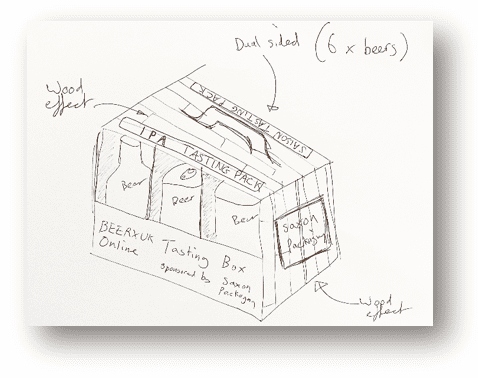 Dual sided (6 x beers)
Wood effect
SAISON TASTING PACK
IPA TASTING PACK
Beer
Beer
Beer
Saxon
Packaging
BEERXUK Tasting Box
Online
sponsored by Saxon
Packaging
Wood
effect